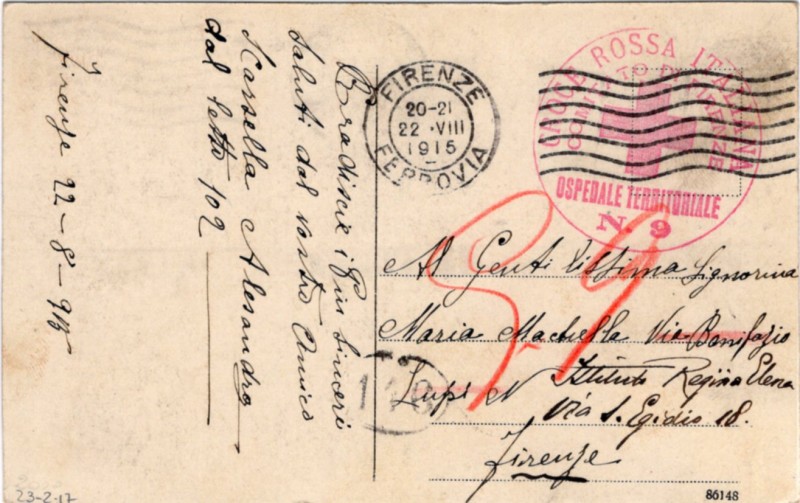 Firenze 22-8-915
Gradisci i piu sinceri
saluti dal vostro Amico
Scassella Alesandro
dal letto 102
FIRENZE
20-21
22·VIII
1915
FERROVIA
CROCE ROSSA ITALIANA
COMITATO DI FIRENZE
OSPEDALE TERRITORIALE
N. 9
5-9
Al Gentilissima Signorina
Maria Via Bonifazio
Lupi N Istituto Regina Elena
Via S. Egidio 18.
Firenze
86148
23-2-17